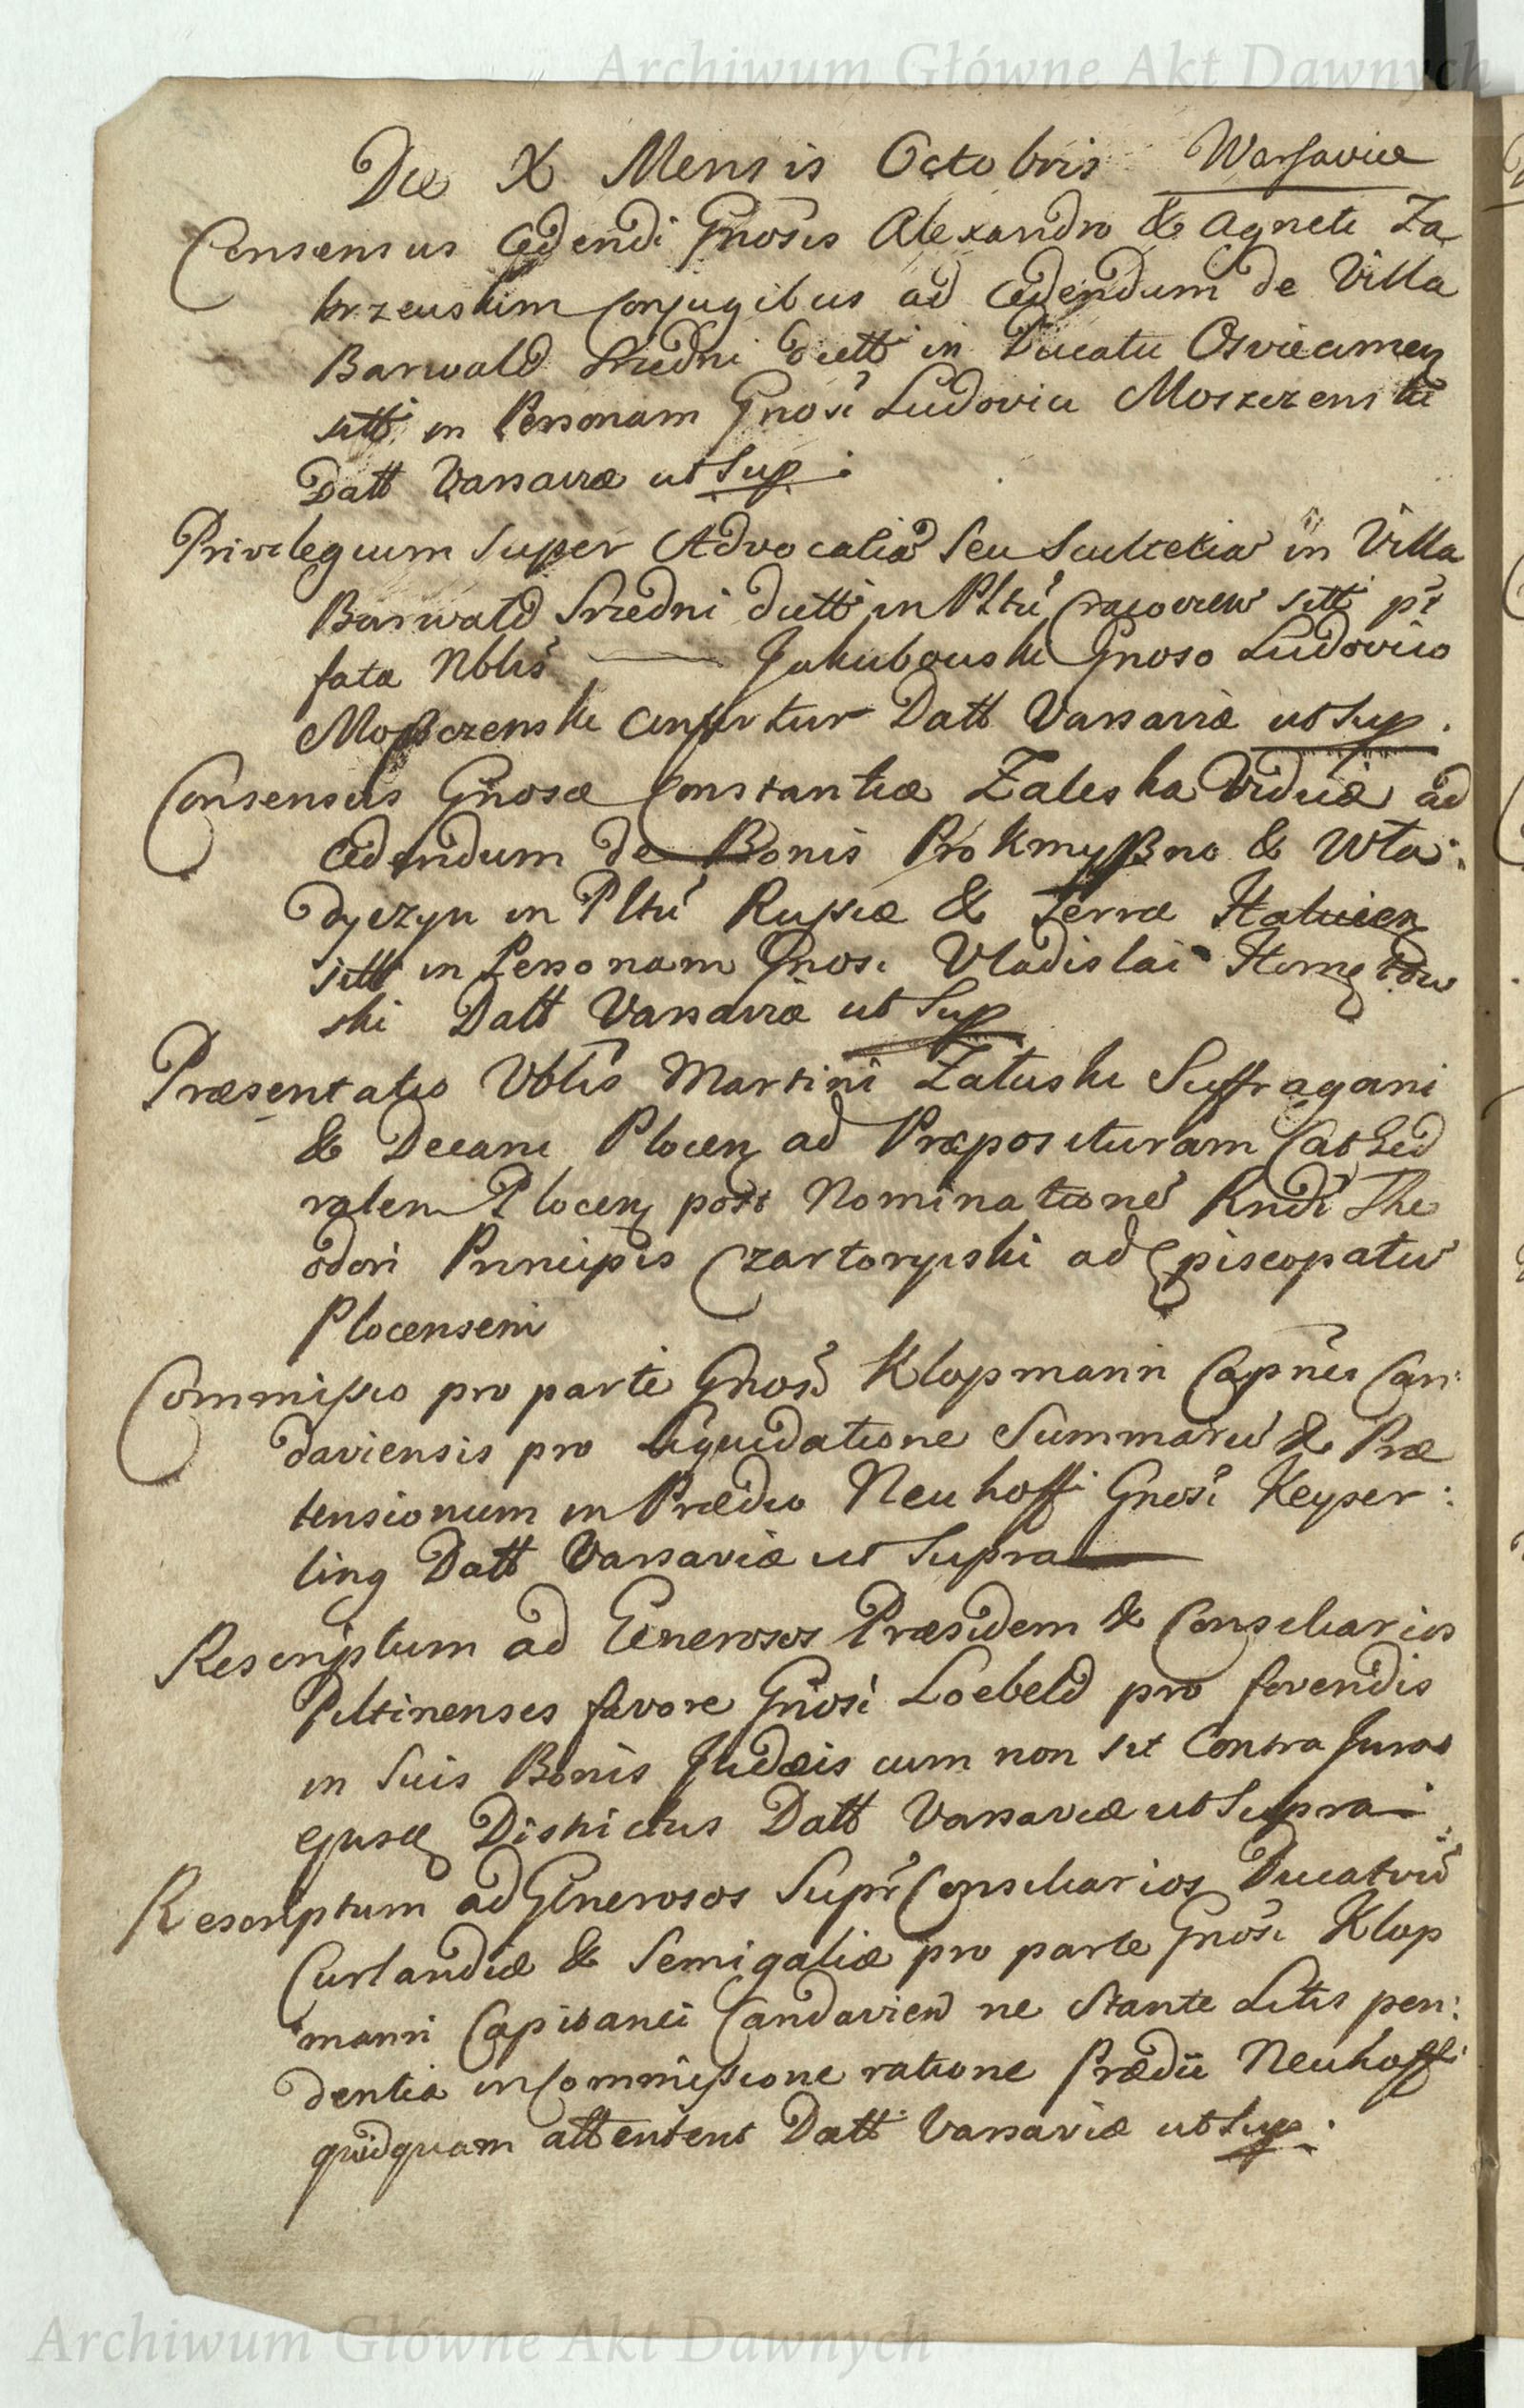 Archiwum Główne Akt Dawnych
Die X Mensis Octobris Warsaviæ
Consensus cedendi Gnosis Alexandro & Agneti Za
krzewskim Conjugibus ad cedendum de Villa
Barwald Srzedni dictt in Ducatu Osviecimen
sitt in Personam Gnosi Ludovici Moszczenski
Datt Varsaviæ ut Sup.
Privilegium super Advocatiã seu Scultetiã in Villa
Barwald Srzedni dictt in Pltũ Cracovien sitt pt
fata Nblis — Jakubouski Gnoso Ludovico
Moszczenski confertur Datt Varsaviæ ut Sup.
Consensus Gnosæ Constantiæ Zaleska Viduæ ad
cedendum de Bonis Prokmyßno & Wła:
dyczyn in Pltũ Russiæ & Terra Halicien
sitt in Personam Gnosi Vladislai
ski Datt Varsaviæ ut Sup
Præsentatio Vblis Martini Załuski Suffragani
& Decani Plocen ad Præposituram Cathed
ralem Plocen post Nominationẽ Rndi The
odori Principis Czartoryiski ad Episcopatũ
Plocensem
Commissio pro parte Gnosi Klopmann Capnei Can:
daviensis pro liquidatione Summarũ & Præ
tensionum in Prædio Neuhoff Gnosi Keyser:
ling Datt Varsaviæ ut Supra
Rescriptum ad Generosos Præsidem & Consiliarios
Piltinenses favore Gnosi Loebeld pro fovendis
in suis Bonis Judæis cum non sit Contra Jura
ejusq Districtus Datt Varsaviæ ut Supra
Rescriptum ad Generosos Supr Consiliarios Ducatuũ
Curlandiæ & Semigaliæ pro parte Gnosi Klop
mann Capitanei Candavien ne stante Litis pen:
dentia in Commissione ratione Prædii Neuhoff
quidquam attentent Datt Varsaviæ ut Sup.
Archiwum Główne Akt Dawnych